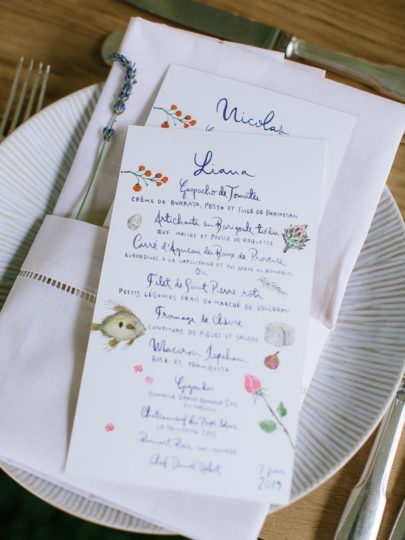 Nicolas
Liana
Gaspacho de Tomates
CRÈME DE BURRATA, PESTO ET TUILE DE PARMESAN
Artichauts en Barigoule
ŒUF MOLLET ET POUSSE DE ROQUETTE
Carré d'Agneau des Baux de Provence
AUBERGINES À LA NAPOLITAINE ET JUS
OU
Filet de Saint Pierre rôti
PETITS LÉGUMES FRAIS DU MARCHÉ DE VELLERON
Fromage de Chèvre
CONFITURE DE FIGUES ET SALADE
Macaron Ispahan
ROSE ET FRAMBOISE
Gigondas
Châteauneuf du Pape blanc
Ruinart Rosé
Chef Daniel
7 juin
2019